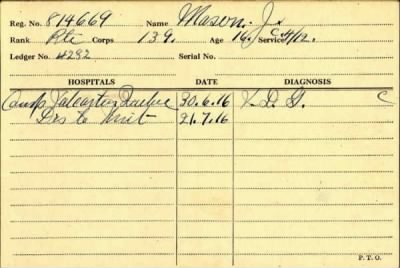 Reg. No. 814669 Name Mason. J.
Rank Pte Corps 139. Age 16. Service 4/12.
Ledger No. 4292 Serial No.
HOSPITALS DATE DIAGNOSIS
Camp Valcartier Quebec 30.6.16 V.D.G. C
Dis to Unit 21.7.16
P.T.O.